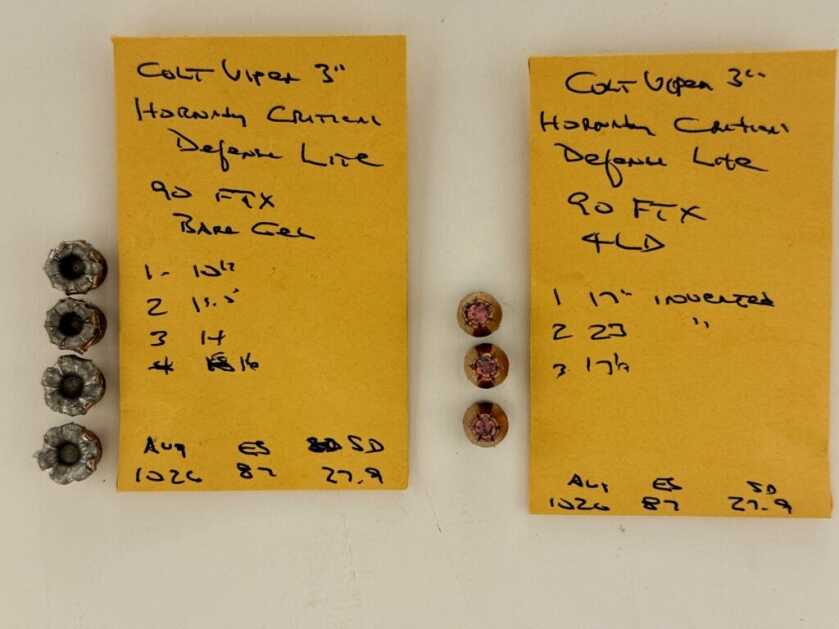 COLT VIPER 3"
HORNADY CRITICAL
Defense Lite
90 FTX
BARE GEL
1-
2
3 14
4 16
Avg ES SD
1026 87 27.9
COLT VIPER 3"
HORNADY CRITICAL
Defense Lite
90 FTX
4LD
1 17" INVERTED
2 23 "
3
Avg ES SD
1026 87 27.9